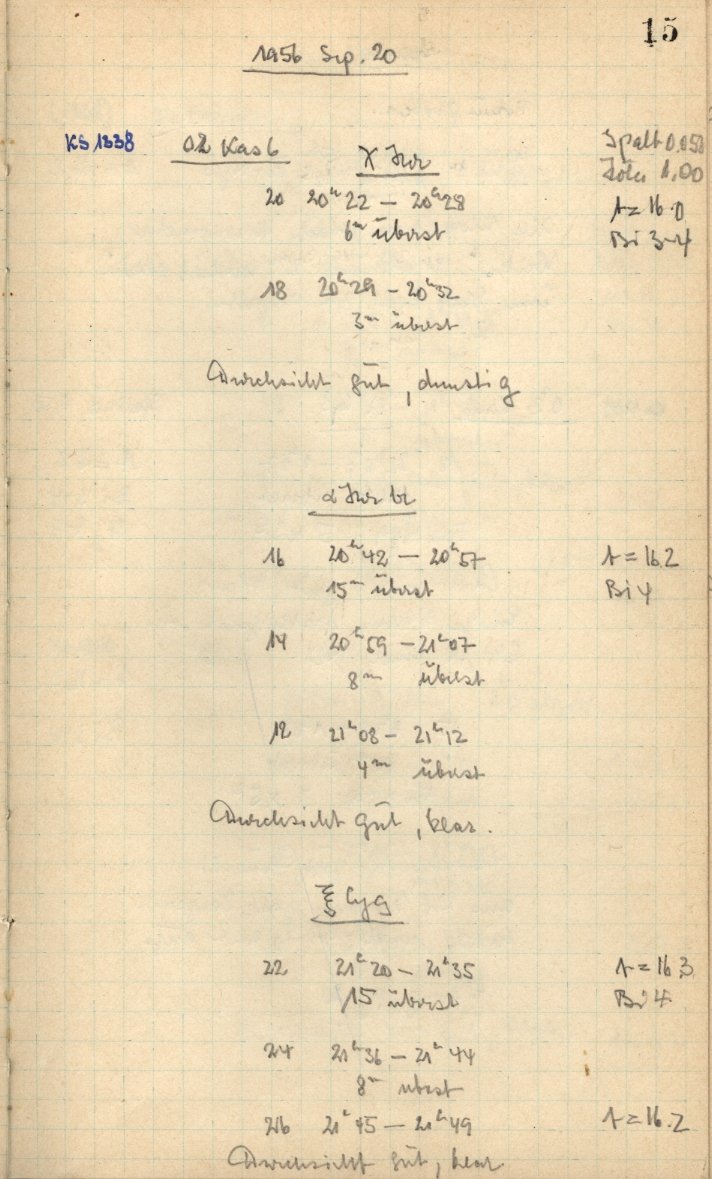 15
1956 Sep. 20
KS 1338 02 Kas 6 χ Her Spalt 0.050
1,00
20 20ʰ22 — 20ʰ28 t = 16.0
6ᵐ überst Bi 3-4
18 20ʰ29 — 20ʰ32
3ᵐ überst
Durchsicht gut, dunstig
α Her br
16 20ʰ42 — 20ʰ57 t = 16.2
15ᵐ überst Bi 4
14 20ʰ59 — 21ʰ07
8ᵐ überst
12 21ʰ08 — 21ʰ12
4ᵐ überst
Durchsicht gut, klar.
ξ Cyg
22 21ʰ20 — 21ʰ35 t = 16.3
15 überst Bi 4
24 21ʰ36 — 21ʰ44
8ᵐ überst
26 21ʰ45 — 21ʰ49 t = 16.2
Durchsicht gut, klar